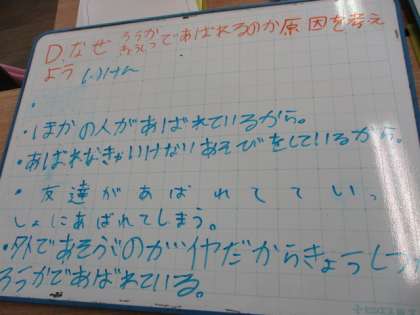 D.なぜ ろうか きょうしつ であばれるのか原因を考え
よう いけん
・ほかの人があばれているから。
・あばれなきゃいけないあそびをしているから。
・友達があばれてていっ
しょにあばれてしまう。
・外であそぶのがイヤだからきょうしつ
ろうかであばれている。